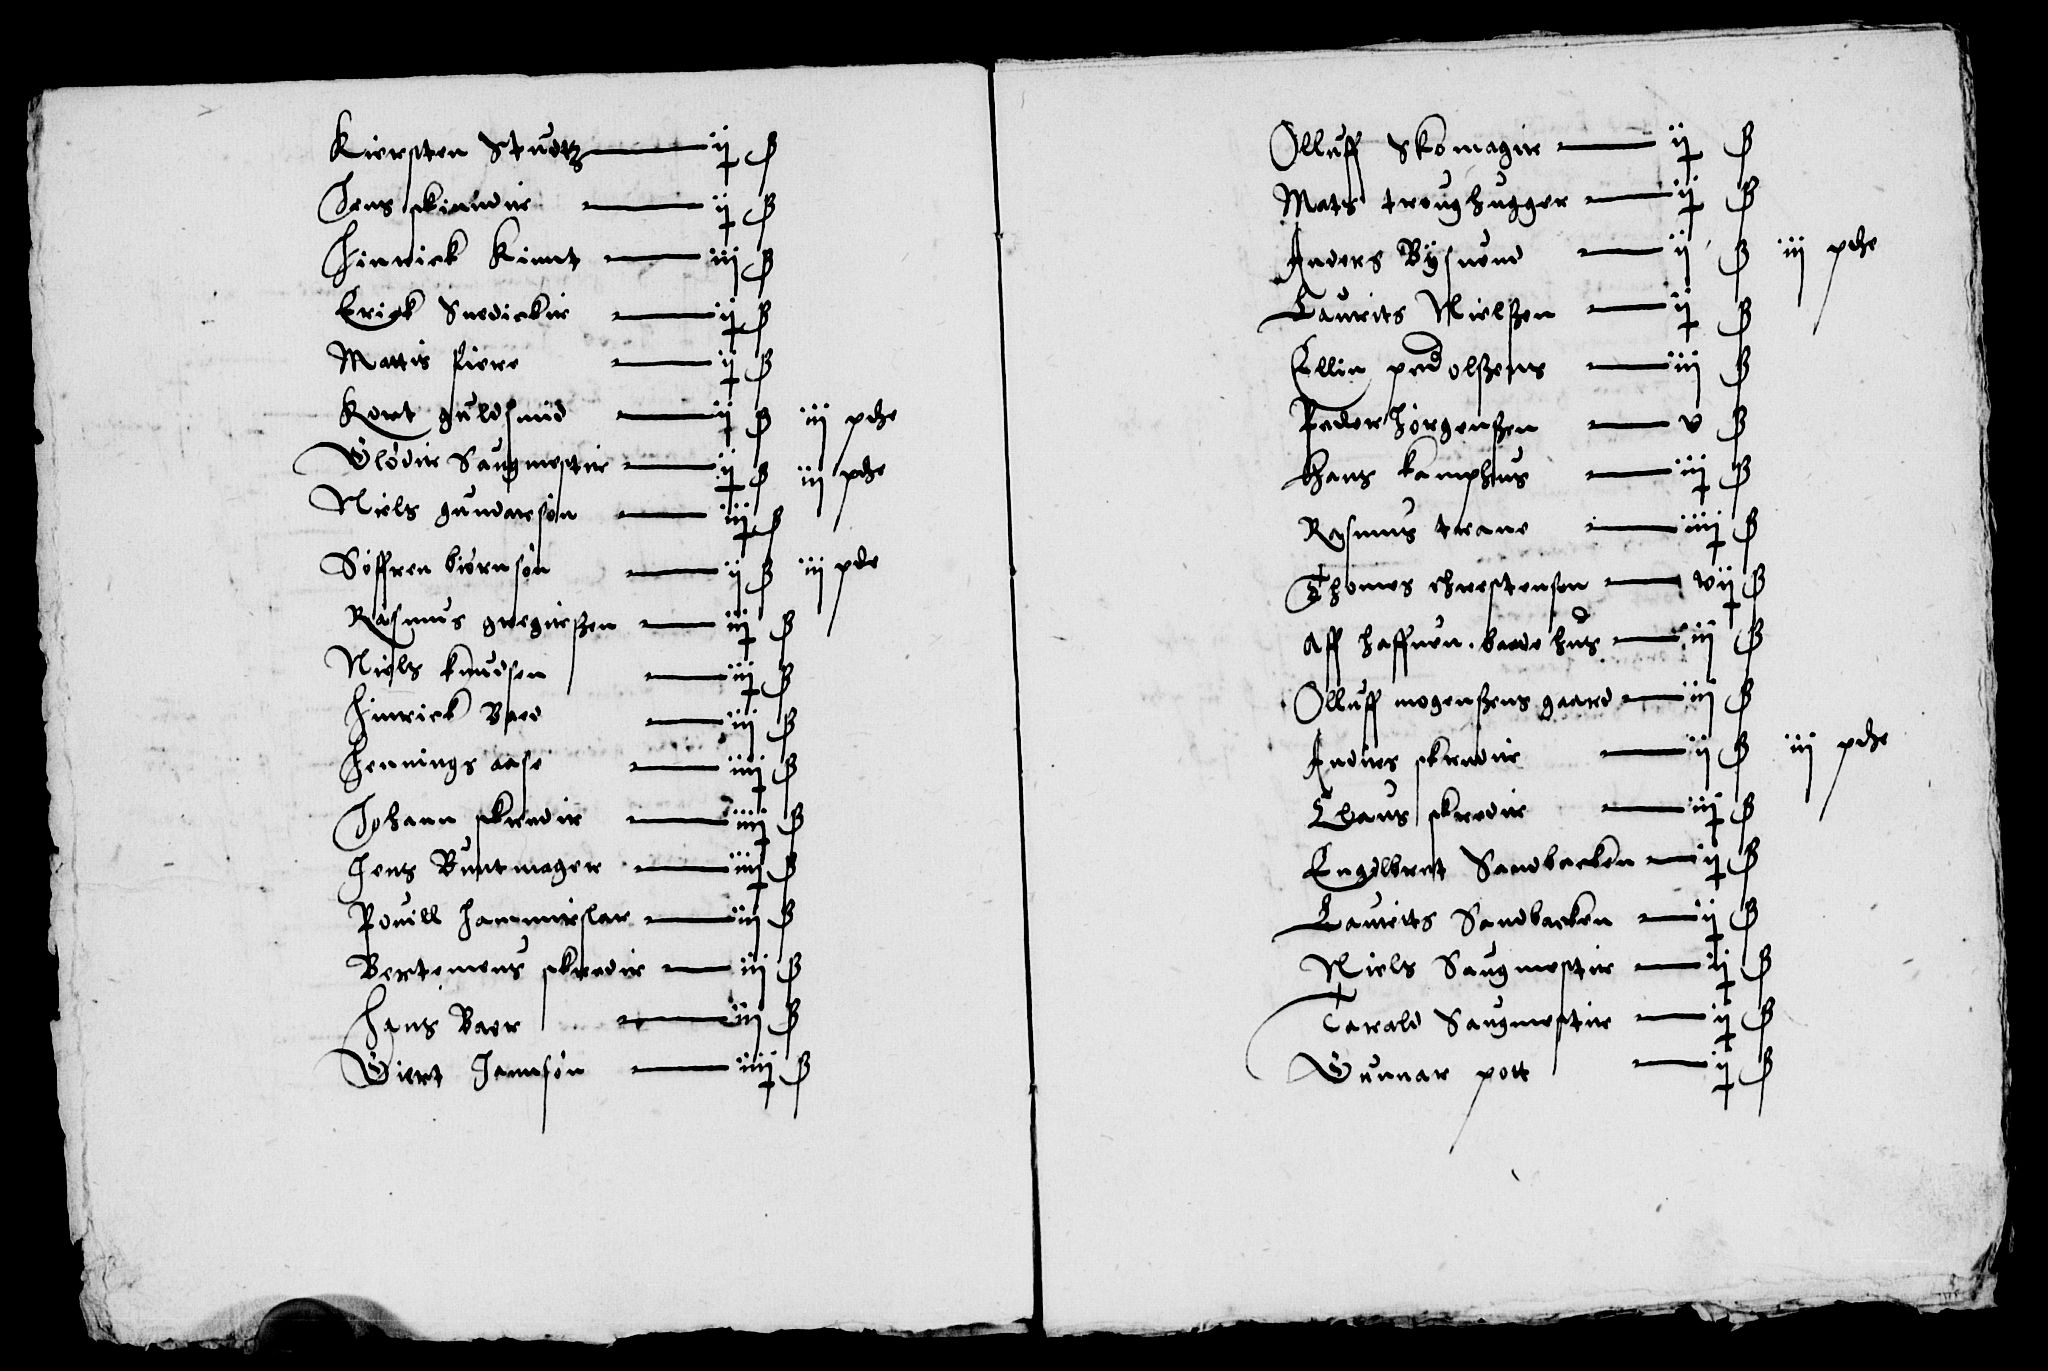 Kiersten Studtz —— ij ß
Jens skindir —— ij ß
Hinrick Kimt —— iij ß
Erick Snedickir —— ij ß
Mattis fiere —— ij ß
Kort guldsmid —— ij ß iij pdge
Olodir Saugmestir —— ij ß iij pdge
Niels gundarsøn —— iij ß
Søffren biørnsøn —— ij ß iij pde
Rasmus gregirßen —— iij ß
Niels knudsen —— iij ß
Hinrick Baed —— iij ß
Hennings aase —— iiij ß
Johann skredir —— iiij ß
Jens Buntmager —— iiij ß
Pouill Hammirslar —— iij ß
Bertemeus skredir —— iij ß
Hans Baer —— iij ß
Giert Jannsøn —— iiij ß
Olluff Skomagir —— ij ß
Mats troughugger —— ij ß
Anders Bysuend —— ij ß iij pdge
Laurits Nielßen —— ij ß
Ellin ped olßens —— iij ß
Peder Jørgenßen —— v ß
Hans kamphus —— iij ß
Rasmus trane —— iiij ß
Thomes chrestensen —— vij ß
Aff haffuen. baade hus —— iij ß
Olluff mogenßens gaard —— iij ß
Andirs skredir —— ij ß iij pdge
Claus skredir —— iij ß
Engelbret Sandbacken —— ij ß
Laurits Sandbacken —— ij ß
Niels Saugmestir —— ij ß
Tarald Saugmestir —— ij ß
Gunnar pott —— ij ß